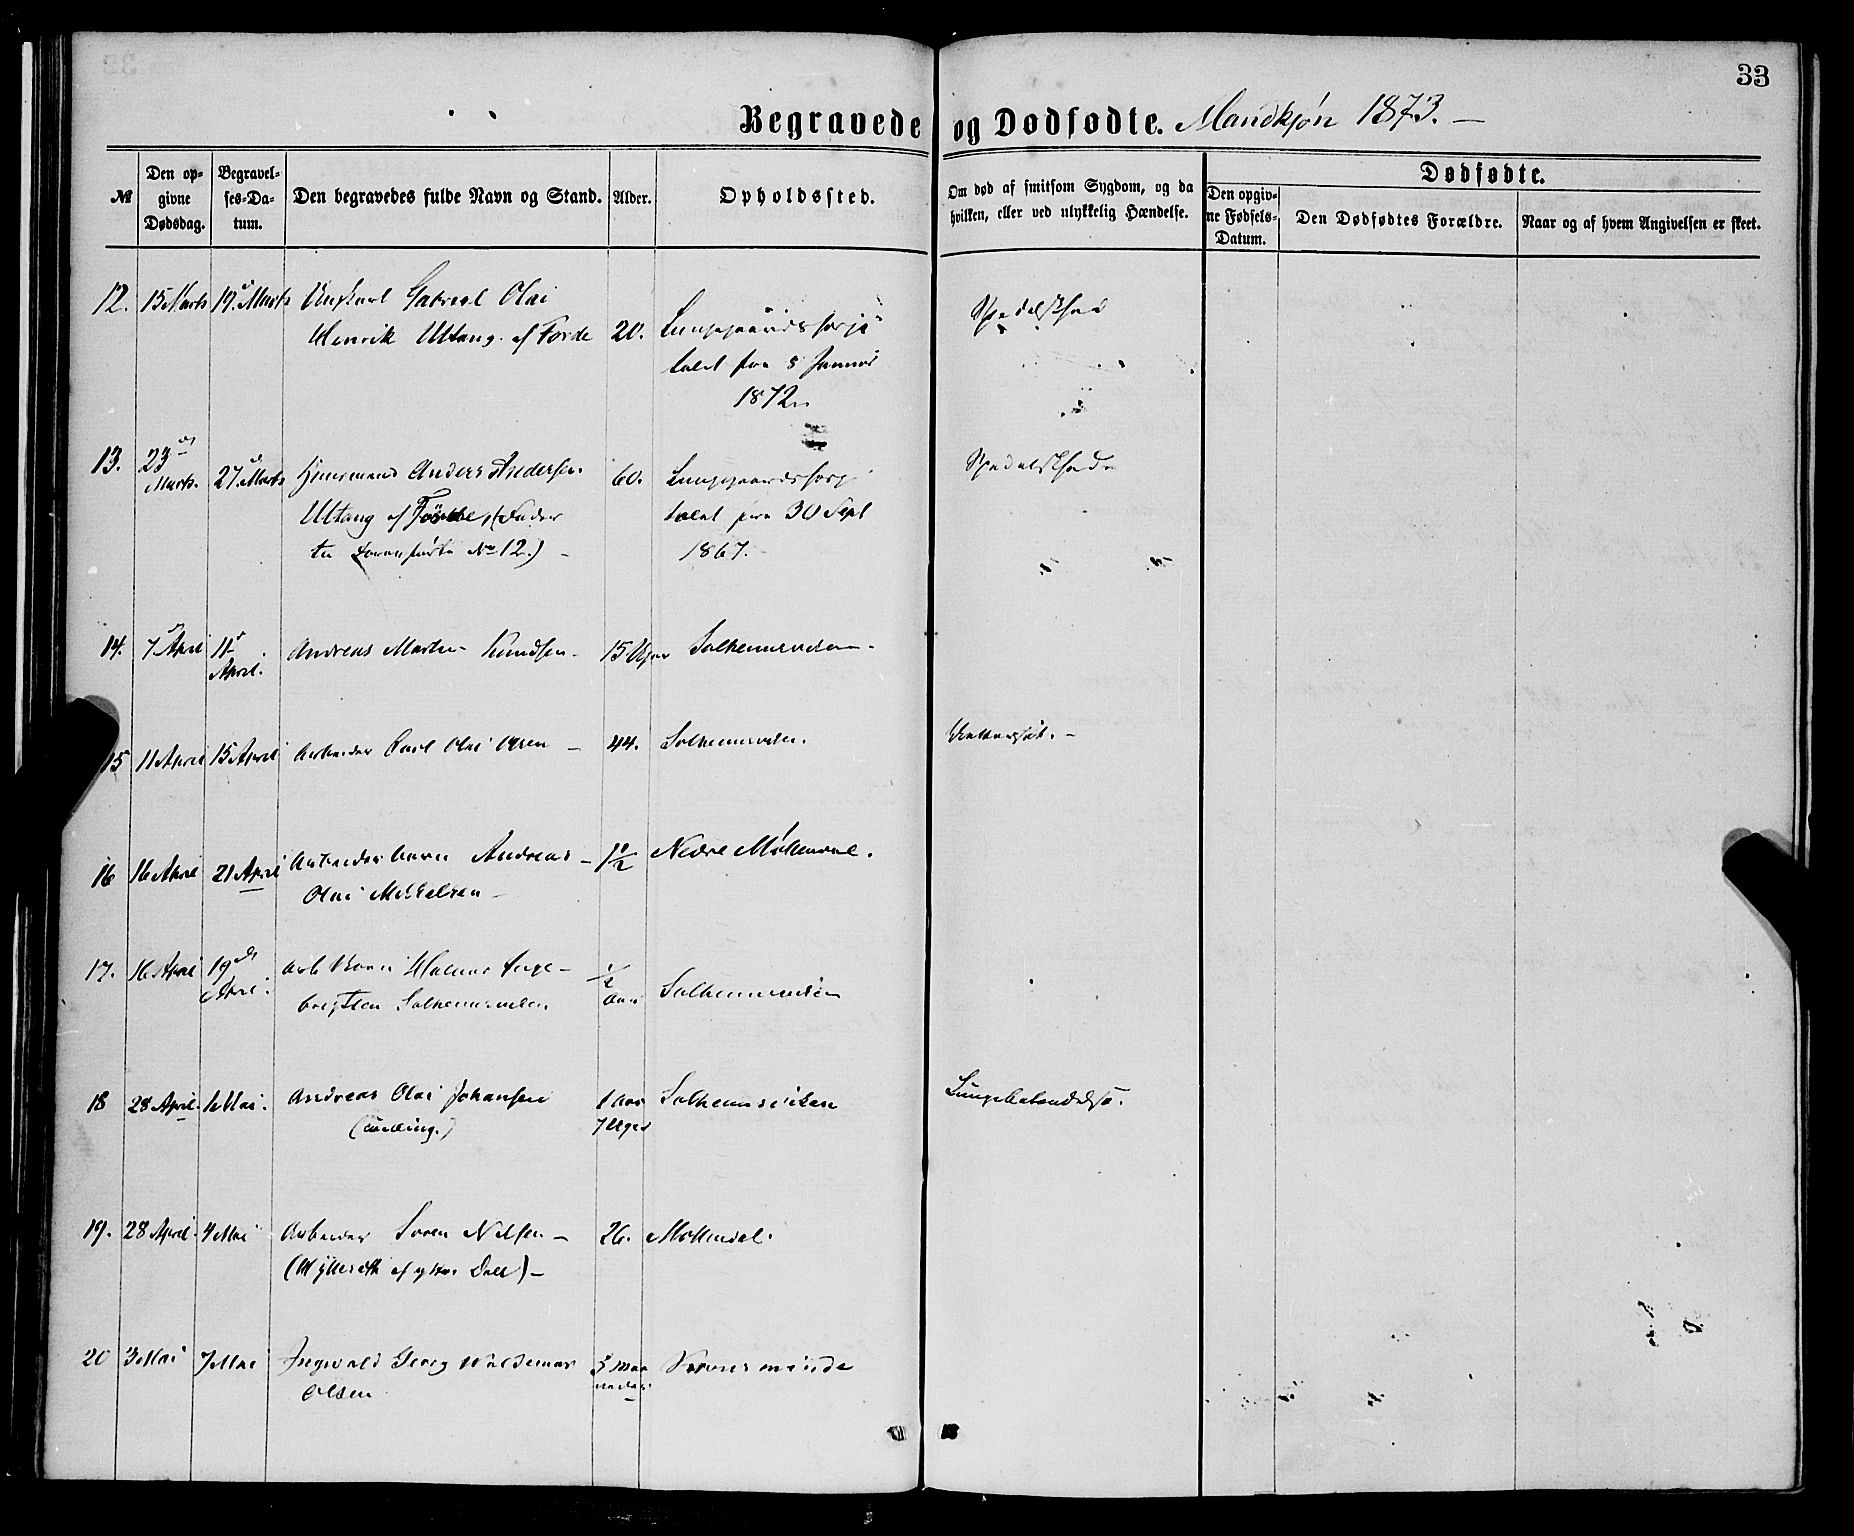 33
Begravede og Dødfødte. Mandkjøn 1873. —
№ Den opgivne Dødsdag. Begravelses-Datum. Den begravedes fulde Navn og Stand. Alder. Opholdssted. Om død af smitsom Sygdom, og da hvilken, eller ved ulykkelig Hændelse. Dødfødte.
Den opgivne Fødsels-Datum. Den Dødfødtes Forældre. Naar og af hvem Angivelsen er skeet.
12. 15 Marts 19. Marts Ungkarl Gabriel Olai
Henrik Utang. af Førde 20. Lungegaardshospi
talet fra 5 Januar
1872.
Spedalskhed
13. 23 Marts. 27. Marts Huusmand Anders Andersen
Utang af Førde, (Fader
til No 12.) —
60. Lungegaardshospi
talet fra 30 Sept
1867.
Spedalskhed
14. 7 April 11 April. Andreas Martin Knudsen 15 Uger Solheimsviken.
15 11 April 15 April Arbeider Carl Olai Olsen — 44. Solheimsviken.
16 16 April 21 April Arbeiderbarn Andreas —
Olai Mikkelsen —
1 1/2 Nedre Møllendal.
17. 16 April 19 April. Arb Barn Inge-
brigtsen Solheimsviken
1/2 Aar Solheimsviken
18 28 April. 1 Mai. Andreas Olai Johansen
(Tvilling.)
1 Aar
7 Uger
Solheimsviken
Lungebetændelse.
19. 28 April. 4 Mai Arbeider Søren Nilsen —
26. Møllendal.
20 3 Mai 7 Mai Ingvald Georg Waldemar
Olsen
3 Maa
neder